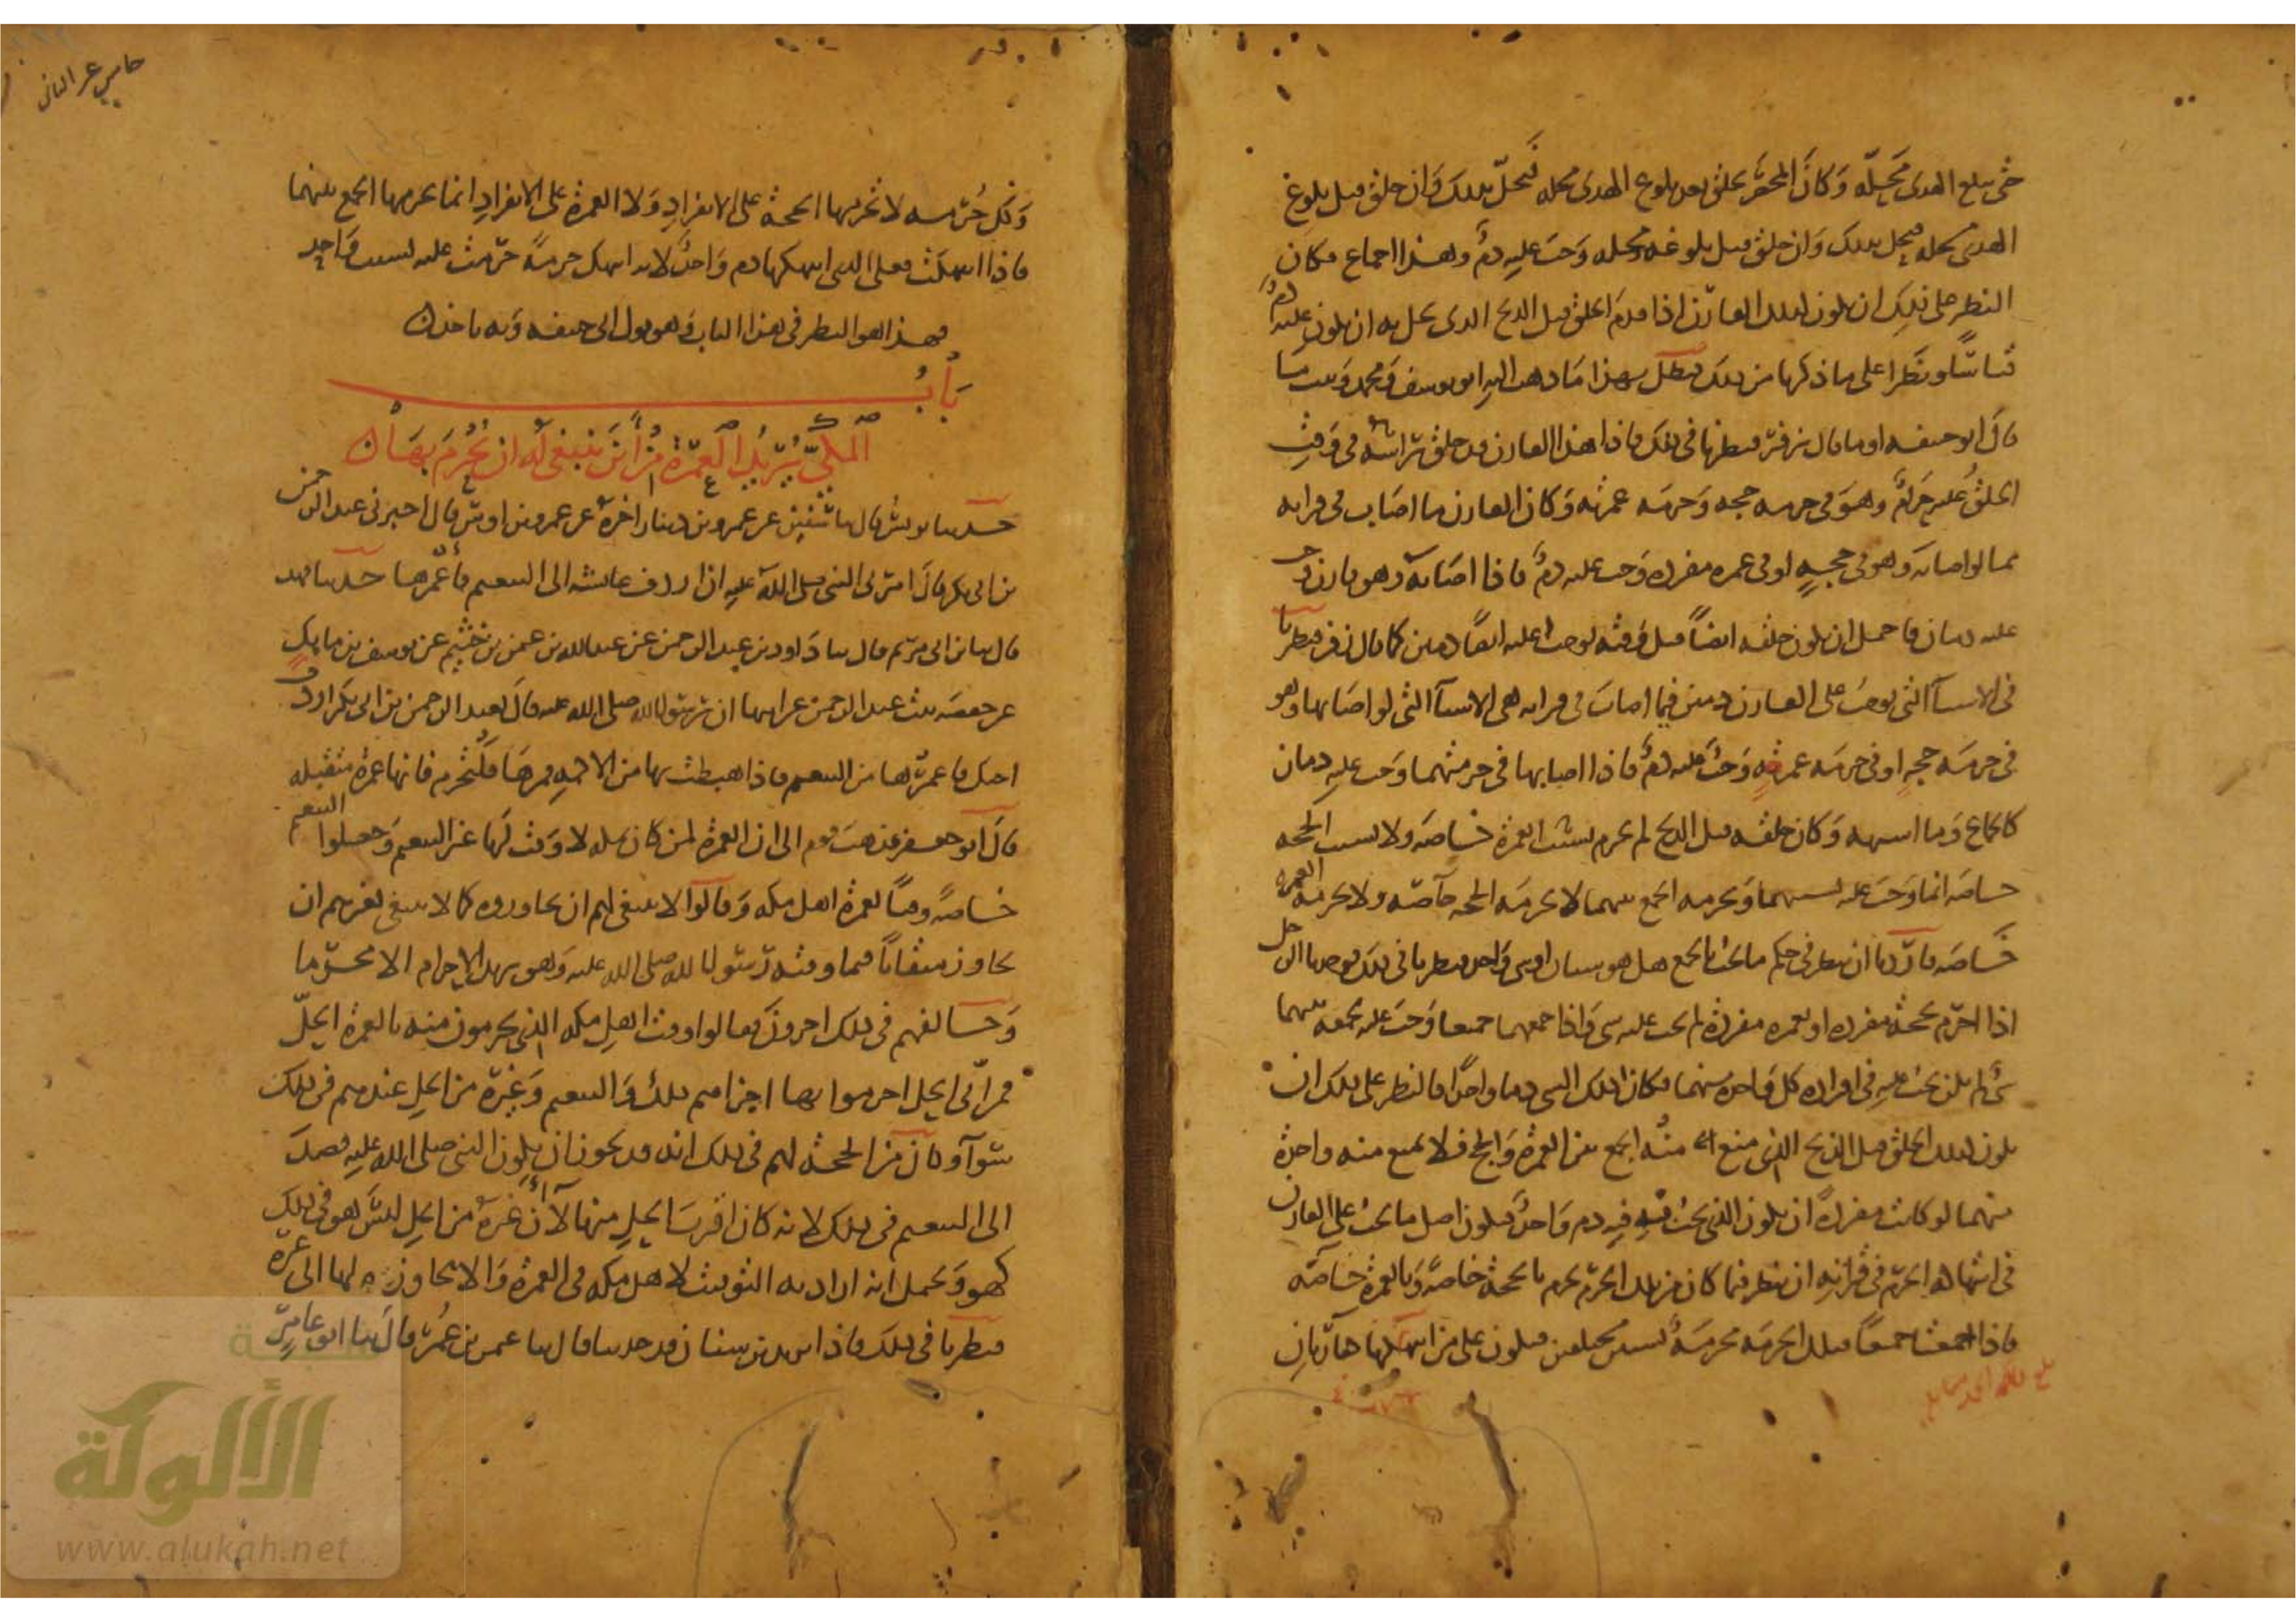 حتى يبلغ الهدى محله وكان المحصر يحلق بعد بلوغ الهدى محله فيحل بذلك وان حلق قبل بلوغ
الهدى محله فيحل بذلك وان حلق قبل بلوغه محله وجب عليه دم وهذا اجماع فكان
النظر على ذلك ان يكون كذلك القارن اذا قدم الحلق قبل الذبح الذى يحل به ان يكون عليه دم
قياسا ونظرا على ما ذكرنا من ذلك فبطل بهذا ما ذهب اليه ابو يوسف ومحمد وثبت ما
قال ابو حنيفه او ما قال زفر فنظرنا فى ذلك فاذا هذا القارن قد حلق راسه فى وقت
الحلق عليه حرام وهو فى حرمه حجه وحرمه عمرته وكان القارن ما اصاب فى قرانه
مما لو اصابه وهو فى حجه او فى عمره مفرده وجب عليه دم فاذا اصابه وهو قارن وجب
عليه دمان فاحتمل ان يكون حلقه ايضا قبل وقته يوجب عليه ايضا دمين كما قال زفر فنظرنا
فى الاشيآ التى توجب على القارن دمين فيما اصاب فى قرانه هى الاشيآ التى لو اصابها وهو
فى حرمه حجه او فى حرمه عمرته وجب عليه دم فاذا اصابها فى حرمتهما وجب عليه دمان
كالجماع وما اشبهه وكان حلقه قبل الذبح لم يحرم بسبب العمرة خاصه ولا بسبب الحجه
خاصه انما وجب عليه بسببهما وبحرمه الجمع بينهما لا بحرمه الحجه خآصه ولا بحرمه العمره
خاصه فاردنا ان ننظر فى حكم ما يجب بالجمع هل هو شيان او شى واحد فنظرنا فى ذلك فوجدنا الرجل
اذا احرم بحجة مفرده او بعمره مفردة لم يجب عليه شى واذا جمعهما جميعا وجب عليه لجمعه بينهما
شى لم يكن يجب عليه فى افراده كل واحدة منهما فكان ذلك الشى دما واحدا فالنظر على ذلك ان
يكون كذلك الحلق قبل الذبح الذى منع منه الجمع بين العمرة والحج فلا يمنع منه واحدة
منهما لو كانت مفردة ان يكون الذى يجب فيه دم واحد فيكون اصل ما يجب على القارن
فى انتهاك الحرم فى قرانه ان ننظر فيما كان من تلك الحرم يحرم بالحجة خاصة وبالعمرة خاصه
فاذا اجتمعتا جميعا فتلك الحرمه محرمة لشيين مختلفين فيكون على من انتهكها كفارتان
وكل حرمه لا تحرمها الحجة على الانفراد ولا العمرة على الانفراد انما يحرمها الجمع بينهما
فاذا انتهكت فعلى الذى انتهكها دم واحد لانه انتهك حرمة حرمت عليه بسبب واحد
فهذا هو النظر فى هذا الباب وهو قول ابى حنيفه وبه ناخذ
باب
المكى يريد العمرة من اين ينبغى له ان يحرم بها
حدثنا يونس قال ثنا سفين عن عمرو بن دينار اخبره عن عمرو بن اوس قال اخبرنى عبد الرحمن
بن ابى بكر قال امرنى النبى صلى الله عليه ان اردف عائشه الى التنعيم فاعمرها حدثنا فهد
قال ثنا ابن ابى مريم قال ثنا داود بن عبد الرحمن عن عبد الله بن عثمن بن خثيم عن يوسف بن ماهك
عن حفصه بنت عبد الرحمن عن ابيها ان رسول الله صلى الله عليه قال لعبد الرحمن بن ابى بكر اردف
اختك فاعمرها من التنعيم فاذا هبطت بها من الاكمه فمرها فلتحرم فانها عمرة متقبله
قال ابو جعفر فذهب قوم الى ان العمرة لمن كان بمكه لا وقت لها غير التنعيم وجعلوا التنعيم
خاصة وقتا لعمرة اهل مكه وقالوا لا ينبغى لهم ان يجاوزوه كما لا ينبغى لغيرهم ان
يجاوز ميقاتا مما وقته رسول الله صلى الله عليه وهو يريد الاحرام الا محرما
وخالفهم فى ذلك اخرون فقالوا وقت اهل مكه الذى يحرمون منه بالعمرة الحل
فمن اى الحل احرموا بها اجزاهم ذلك والتنعيم وغيره من الحل عندهم فى ذلك
سوآ وكان من الحجة لهم فى ذلك انه قد يجوز ان يكون النبى صلى الله عليه قصد
الى التنعيم فى ذلك لانه كان اقرب الحل منها لآن غيره من الحل ليس هو فى ذلك
كهو ويحتمل انه اراد به التوقيت لاهل مكه فى العمرة والا يجاوزه لها الى غيره
فنظرنا فى ذلك فاذا يزيد بن سنان قد حدثنا قال ثنا عثمن بن عمر قال ثنا ابو عامر
الألوكة
www.alukah.net